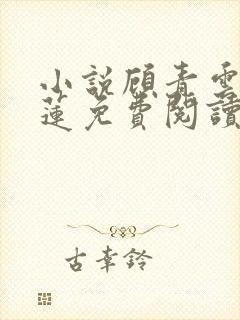 小說顧青雲
蓮免費閱讀
古幸鈴